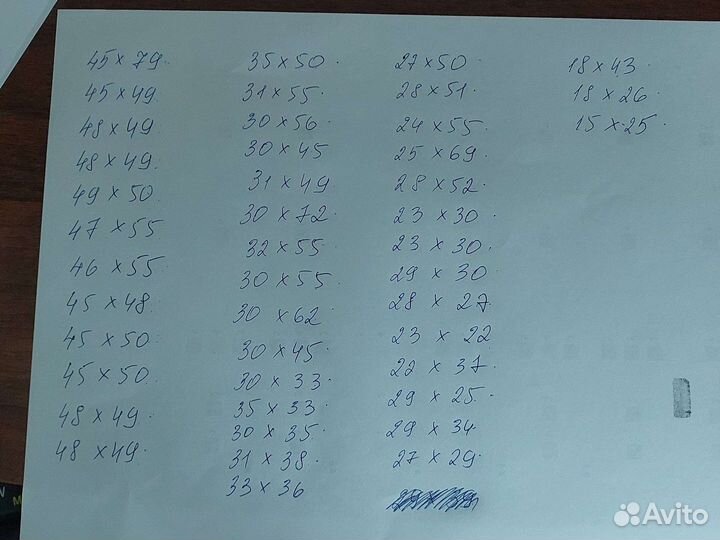 45 x 79.
45 x 49.
48 x 49.
48 x 49.
49 x 50.
47 x 55.
46 x 55.
45 x 48.
45 x 50.
45 x 50.
48 x 49.
48 x 49.
35 x 50.
31 x 55.
30 x 56.
30 x 45
31 x 49.
30 x 72.
32 x 55.
30 x 55.
30 x 62.
30 x 45.
30 x 33.
35 x 33.
30 x 35.
31 x 38.
33 x 36
27 x 50.
28 x 51.
24 x 55.
25 x 69.
28 x 52.
23 x 30.
23 x 30.
29 x 30.
28 x 27.
23 x 22
22 x 37.
29 x 25.
29 x 34.
27 x 29.
18 x 43.
18 x 26.
15 x 25.
Avito